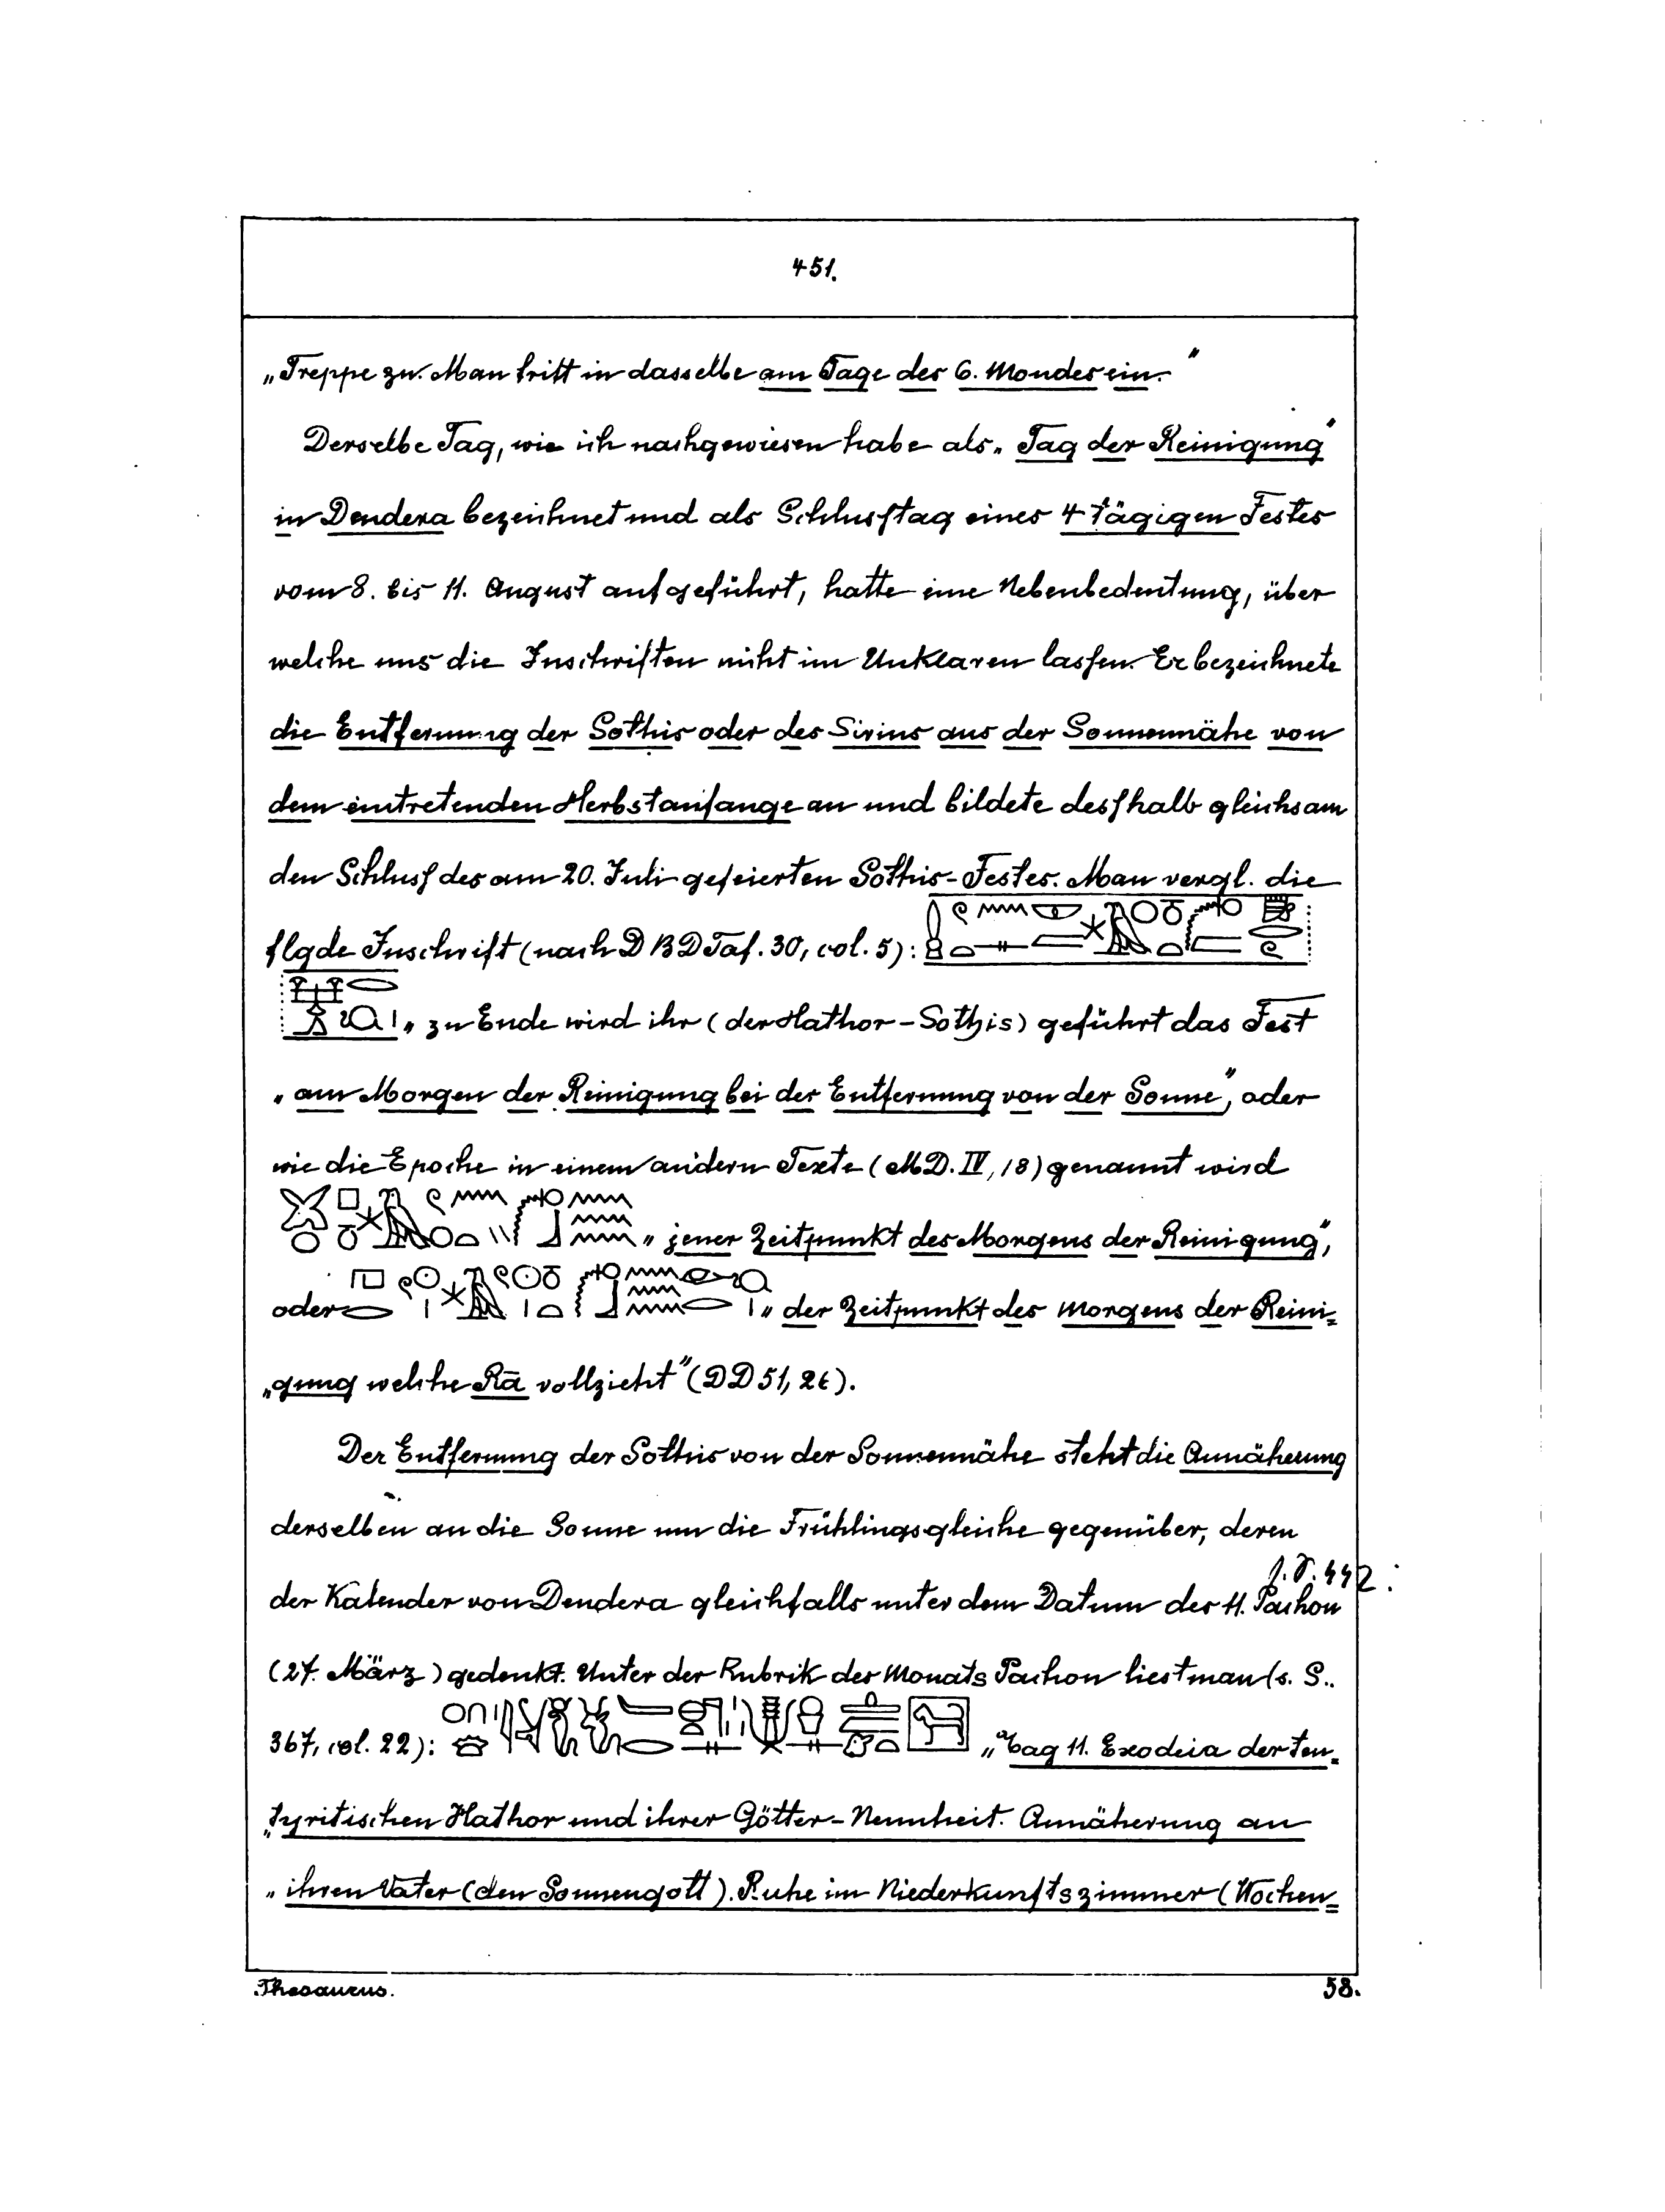 451.
„Treppe zu. Man tritt in dasselbe am Tage des 6. Mondes ein."
Derselbe Tag, wie ich nachgewiesen habe als „Tag der Reinigung"
in Dendera bezeichnet und als Schlusstag eines 4 tägigen Festes
vom 8. bis 11. August aufgeführt, hatte eine Nebenbedeutung, über
welche uns die Inschriften nicht im Unklaren lassen. Er bezeichnete
die Entfernung der Sothis oder des Sirius aus der Sonnennähe von
dem eintretenden Herbstanfange an und bildete desshalb gleichsam
den Schluss des am 20. Juli gefeierten Sothis-Festes. Man vergl. die
flgde Inschrift (nach DBD Taf. 30, col. 5):
„zu Ende wird ihr (der Hathor-Sothis) geführt das Fest
„am Morgen der Reinigung bei der Entfernung von der Sonne", oder
wie die Epoche in einem andern Texte (MD. IV, 18) genannt wird
„jener Zeitpunkt des Morgens der Reinigung",
oder „der Zeitpunkt des Morgens der Reini=
„gung welche Rā vollzieht" (DD 51, 26).
Der Entfernung der Sothis von der Sonnennähe steht die Annäherung
derselben an die Sonne um die Frühlingsgleiche gegenüber, deren
s. S. 442
der Kalender von Dendera gleichfalls unter dem Datum des 11. Pachon
(27. März) gedenkt. Unter der Rubrik des Monats Pachon liest man (s. S.
367, col. 22): „Tag 11. Exodeia der ten=
„tyritischen Hathor und ihrer Götter-Neunheit. Annäherung an
„ihren Vater (den Sonnengott). Ruhe im Niederkunftszimmer (Wochen=
Thesaurus.
58.